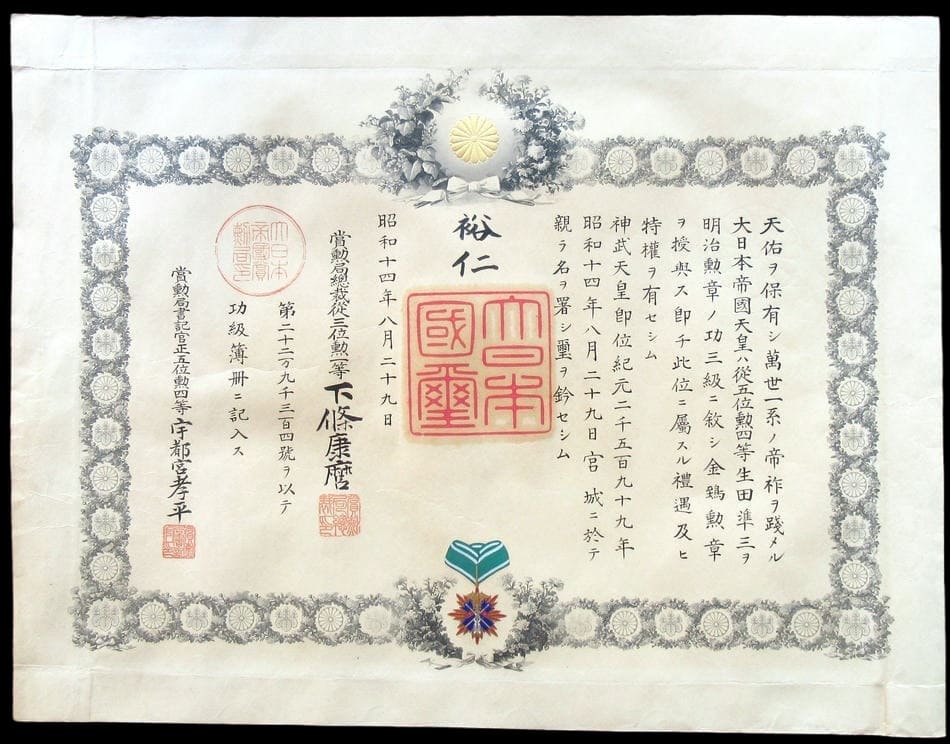 天佑ヲ保有シ萬世一系ノ帝祚ヲ踐メル
大日本帝國天皇ハ從五位勲四等生田準三ヲ
明治勲章ノ功三級ニ敘シ金鵄勲章
ヲ授與ス即チ此位ニ屬スル禮遇及ヒ
特權ヲ有セシム
神武天皇即位紀元二千五百九十九年
昭和十四年八月二十九日宮城ニ於テ
親ラ名ヲ署シ璽ヲ鈐セシム
裕仁
大日本國璽
昭和十四年八月二十九日
賞勲局總裁從三位勲一等下條康麿
第二十二万九千三百四號ヲ以テ
功級簿册ニ記入ス
大日本帝國賞勲局印
賞勲局書記官正五位勲四等宇都宮孝平